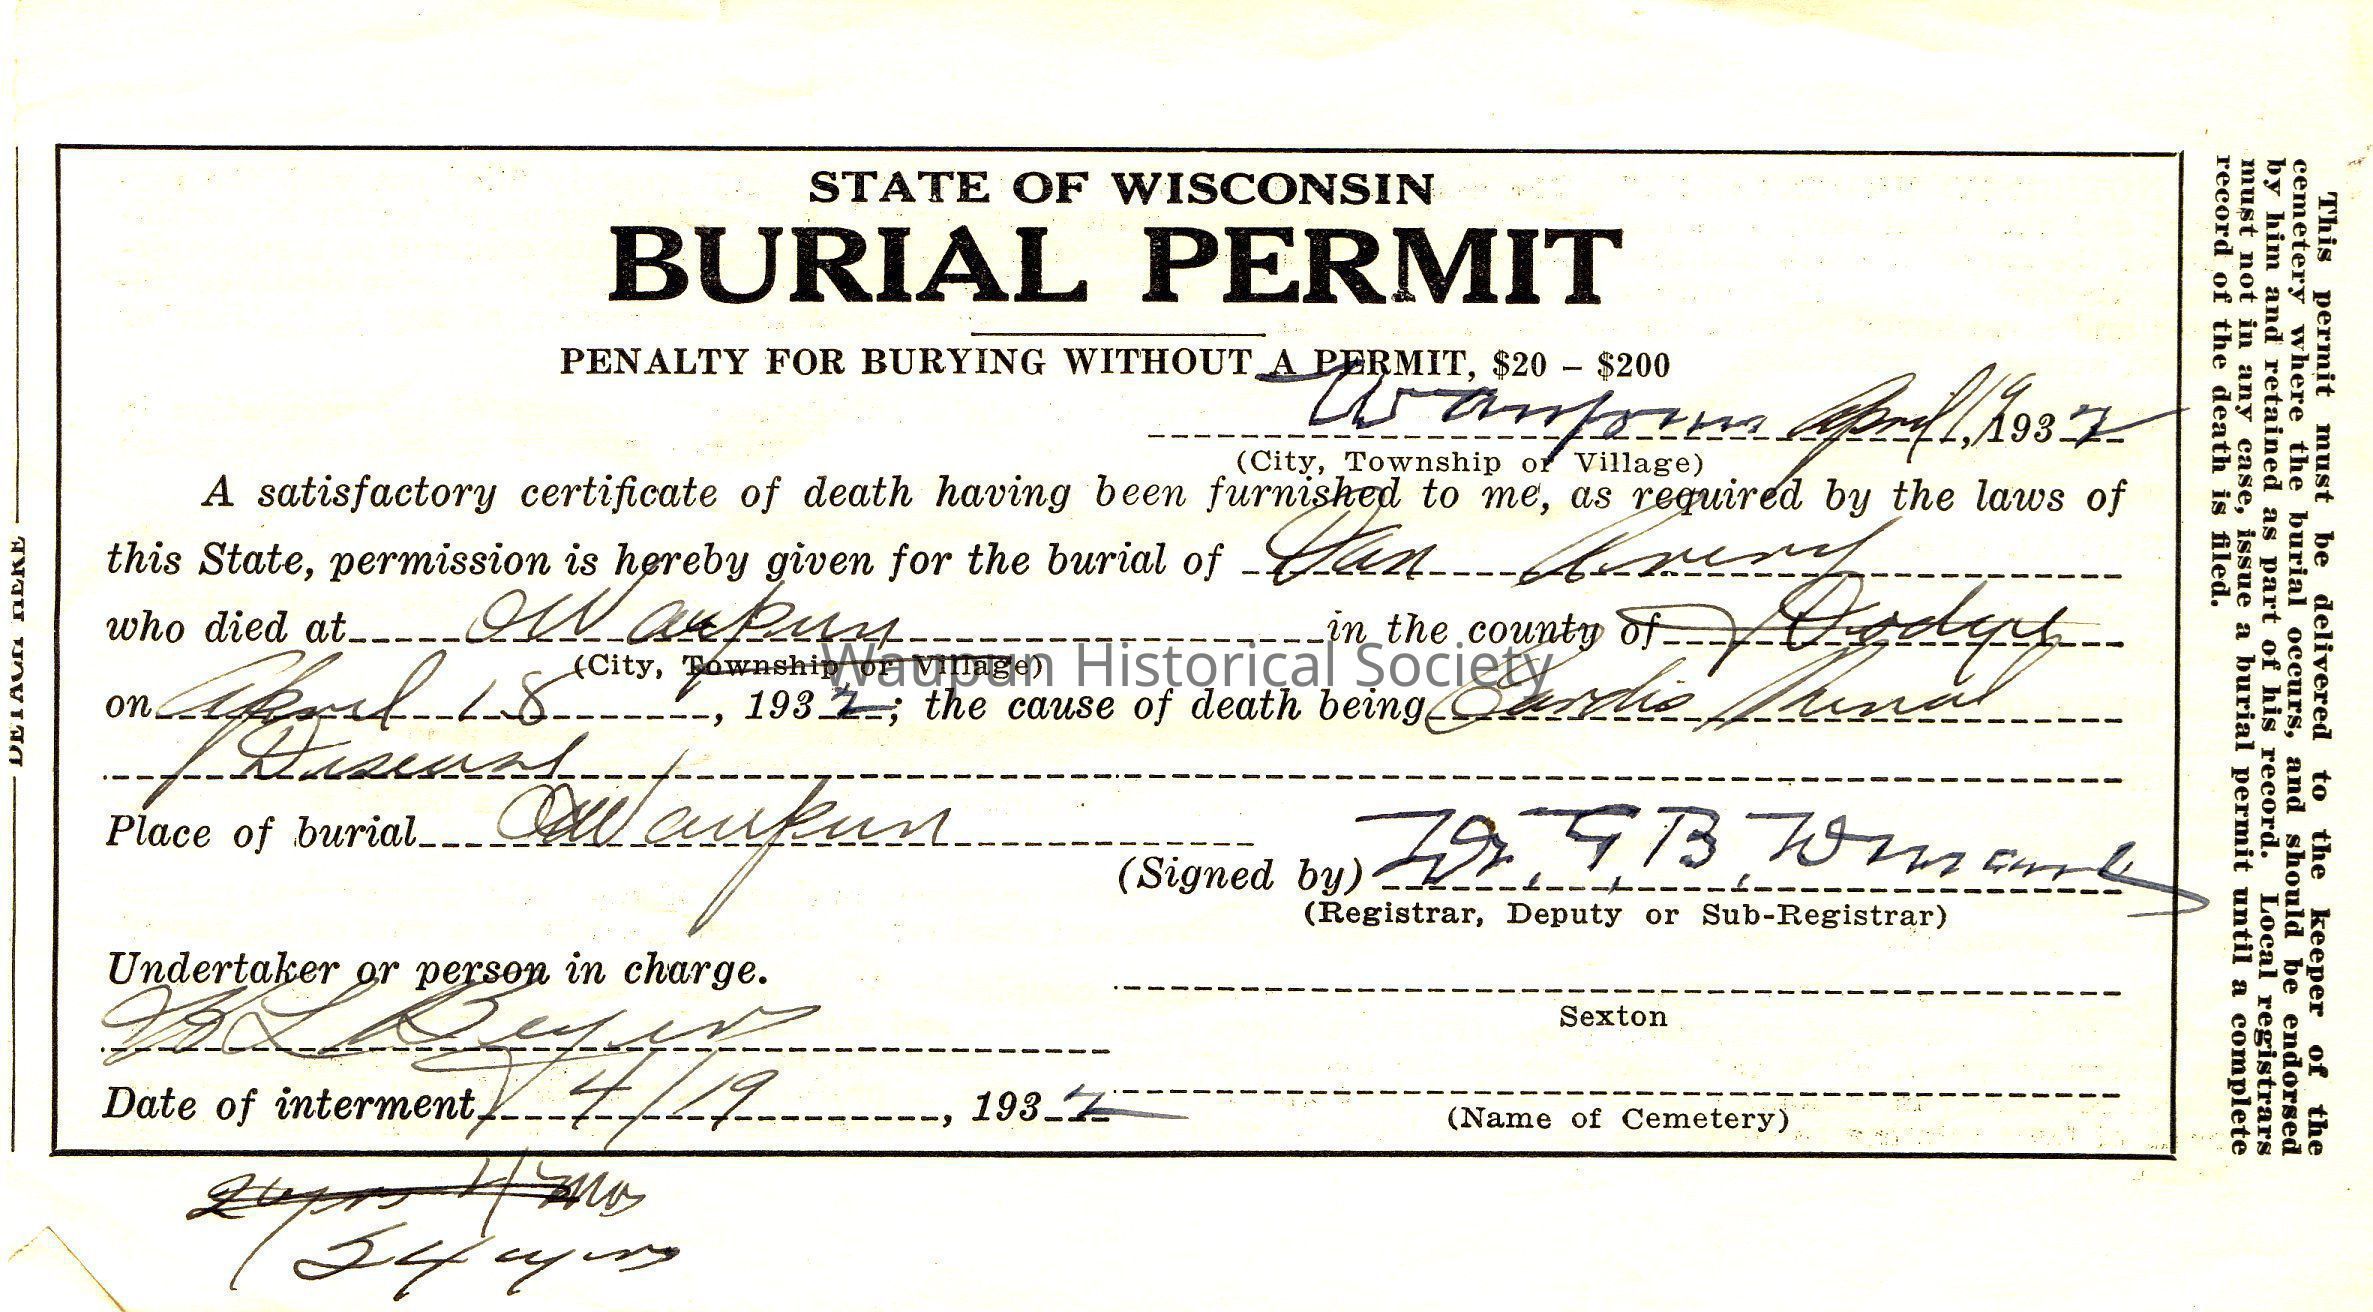 STATE OF WISCONSIN
BURIAL PERMIT
PENALTY FOR BURYING WITHOUT A PERMIT, $20 – $200
Waupun April 19, 1932
(City, Township or Village)
A satisfactory certificate of death having been furnished to me, as required by the laws of
this State, permission is hereby given for the burial of Dan Avery
who died at Waupun in the county of Dodge
(City, Township or Village)
on April 18, 1932; the cause of death being Cardio Renal
Disease
Place of burial Waupun
(Signed by) Dr. G. B.
(Registrar, Deputy or Sub-Registrar)
Undertaker or person in charge.
Sexton
Date of interment 4/19, 1932
(Name of Cemetery)
54 yrs
DETACH HERE
This permit must be delivered to the keeper of the
cemetery where the burial occurs, and should be endorsed
by him and retained as part of his record. Local registrars
must not in any case, issue a burial permit until a complete
record of the death is filed.
Waupun Historical Society